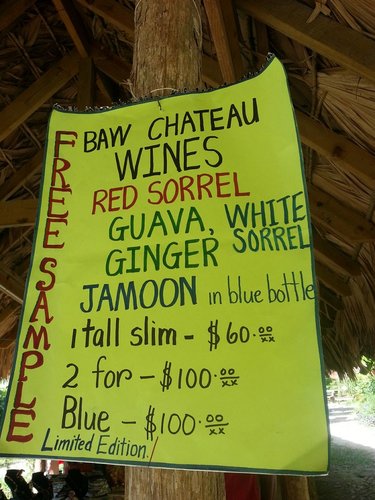 FREE SAMPLE
BAW CHATEAU
WINES
RED SORREL
GUAVA, WHITE
GINGER SORREL
JAMOON in blue bottle
1 tall slim - $60.00/xx
2 for - $100.00/xx
Blue - $100.00/xx
Limited Edition!